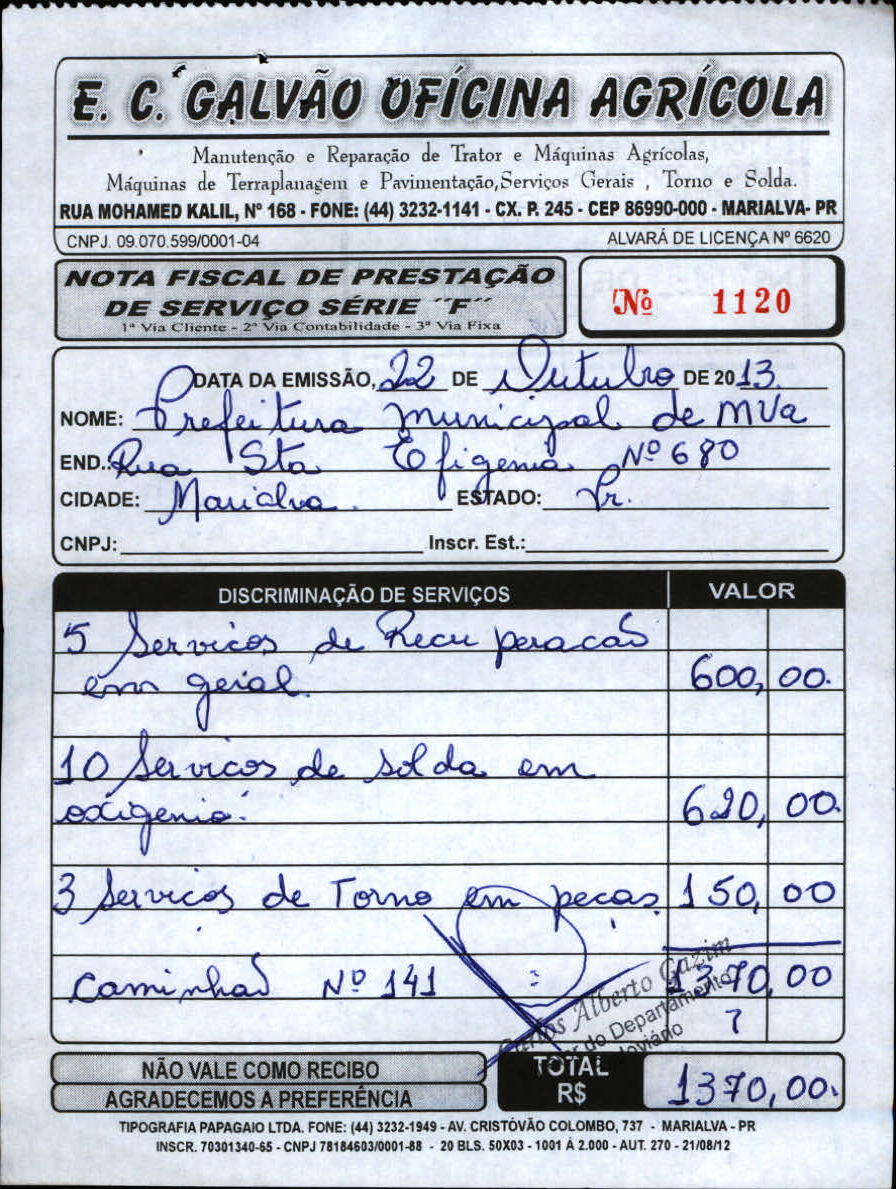 E. C. GALVÃO OFÍCINA AGRÍCOLA
Manutenção e Reparação de Trator e Máquinas Agrícolas,
Máquinas de Terraplanagem e Pavimentação, Serviços Gerais , Torno e Solda.
RUA MOHAMED KALIL, Nº 168 - FONE: (44) 3232-1141 - CX. P. 245 - CEP 86990-000 - MARIALVA- PR
CNPJ. 09.070.599/0001-04 ALVARÁ DE LICENÇA Nº 6620
NOTA FISCAL DE PRESTAÇÃO
DE SERVIÇO SÉRIE ´´F´´
1ª Via Cliente - 2ª Via Contabilidade - 3ª Via Fixa
Nº 1120
DATA DA EMISSÃO, 22 DE Outubro DE 2013
NOME: Prefeitura Municipal de MVa
END.: Rua Sta Efigenia Nº 680
CIDADE: Marialva. ESTADO: Pr.
CNPJ: Inscr. Est.:
DISCRIMINAÇÃO DE SERVIÇOS VALOR
5 Servicos de Recuperacaõ
em geral. 600,00.
10 Servicos de solda em
oxigenio. 620,00.
3 Servicos de Torno em pecas. 150,00
Caminhaõ Nº 141 1370,00
Carlos Alberto Gazim
do Departamento
TOTAL
R$ 1370,00.
NÃO VALE COMO RECIBO
AGRADECEMOS A PREFERÊNCIA
TIPOGRAFIA PAPAGAIO LTDA. FONE: (44) 3232-1949 - AV. CRISTÓVÃO COLOMBO, 737 - MARIALVA - PR
INSCR. 70301340-65 - CNPJ 78184603/0001-88 - 20 BLS. 50X03 - 1001 Á 2.000 - AUT. 270 - 21/08/12